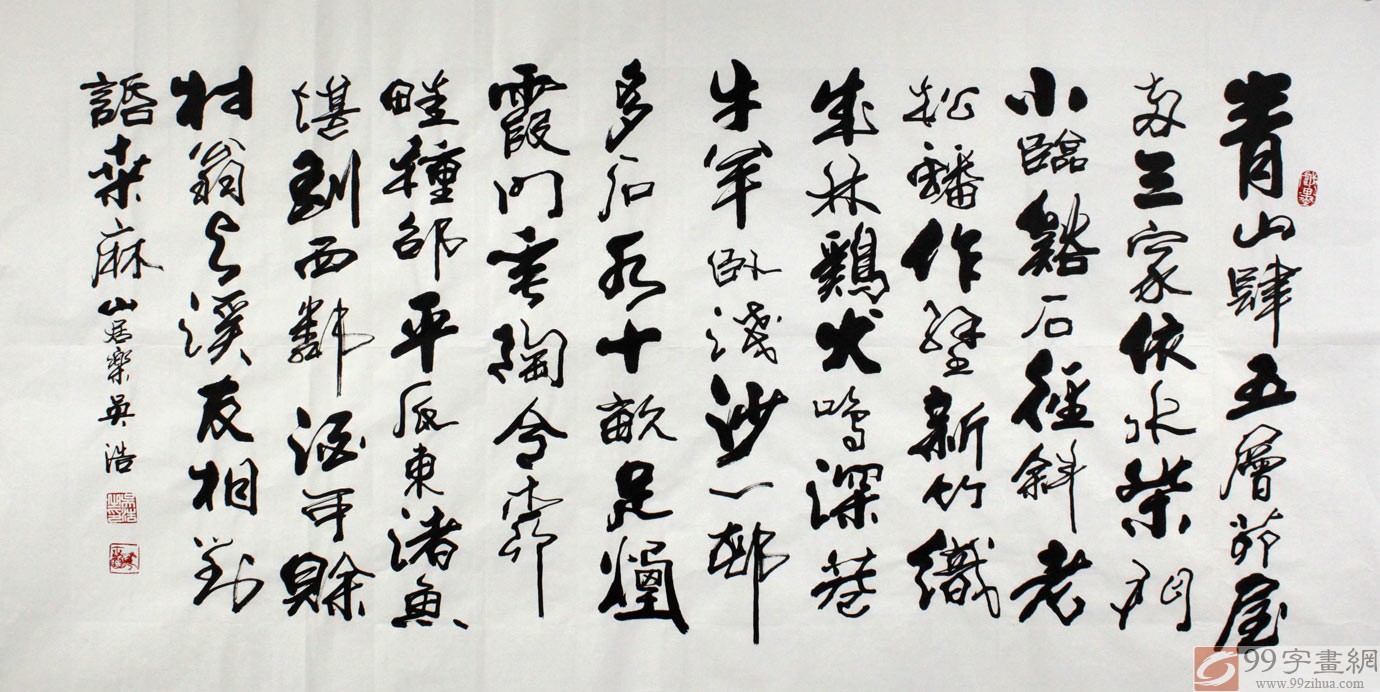 青山肆五層茆屋
兩三家依水柴門
小臨谿石徑斜老
松蟠作壁新竹織
成林鷄犬鳴深巷
牛羊卧淺沙一邨
多石水十畝足煙
霞門垂陶令柳
畦種邵平瓜東渚魚
堪釣西鄰酒可賖
村翁与溪友相對
諙桑麻山居樂吴浩
99字畫網
www.99zihua.com